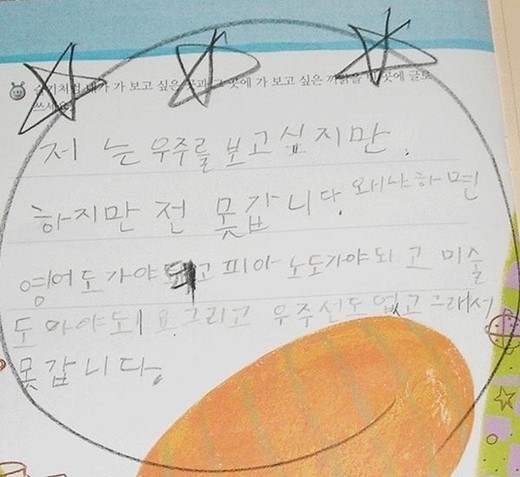 내가 가 보고 싶은 곳과 그 곳에 가 보고 싶은 까닭을 빈 곳에 글로
쓰세요.
저 는 우주를 보고싶지만.
하지만 전 못갑니다. 왜냐하면
영어도가야되고 피아노도가야돠고 미술
도 아야도l요 그리고 우주선도 없고 그래서
못갑니다.